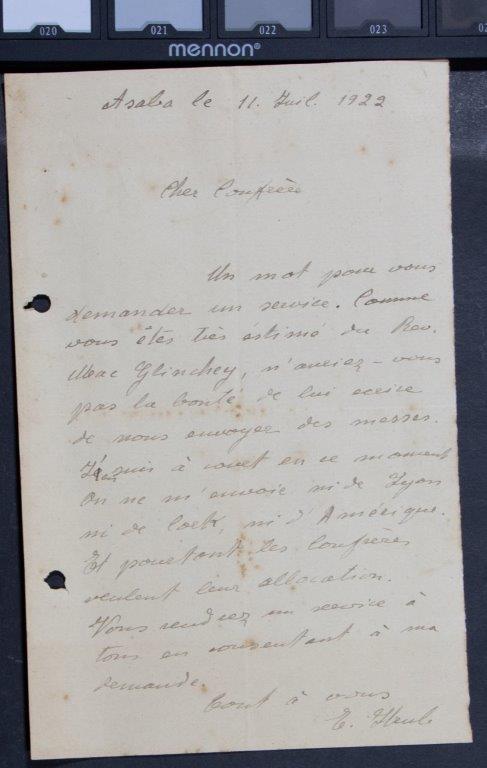 020 021 022 023
mennon®
Asaba le 11. Juil. 1922
Cher Confrère
Un mot pour vous
demander un service. Comme
vous êtes très éstimé du Rev.
Mac Glinchey, n'auriez-vous
pas la bonté de lui écrire
de nous envoyer des messes.
J'en suis à court en ce moment
On ne m'envoie ni de Lyon
ni de Cork, ni d'Amérique.
Et pourtant les Confrères
veulent leur allocation.
Vous rendrez un service à
tous en consentant à ma
demande.
Tout à vous
E.